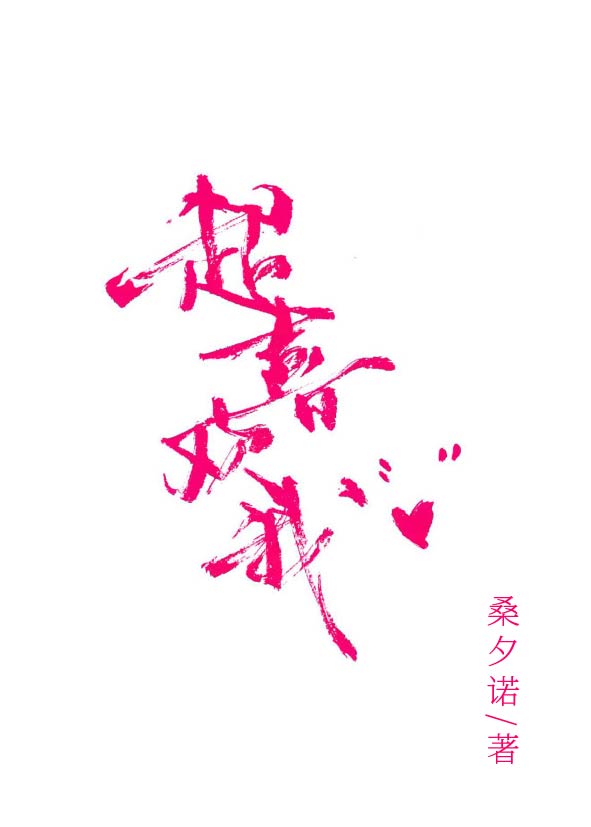 超喜欢我
桑夕诺/著